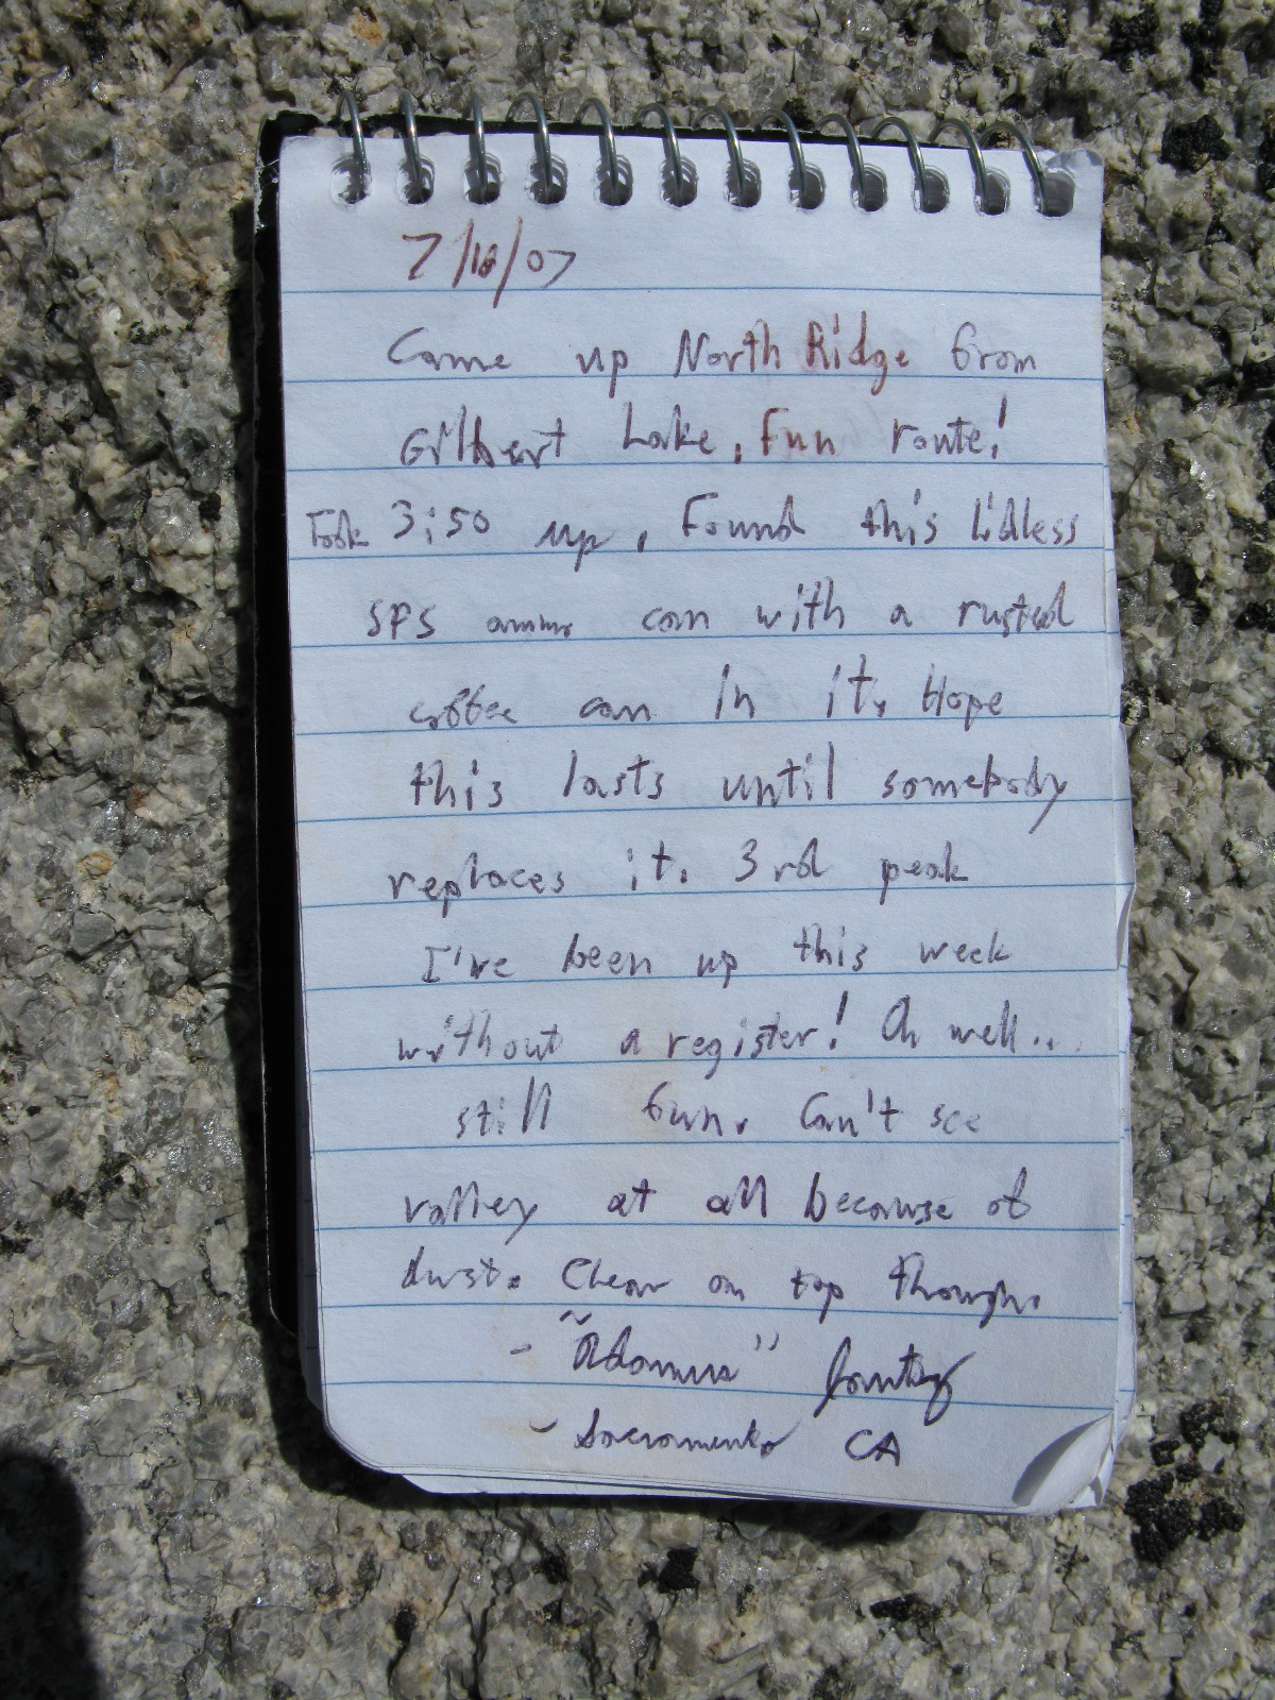 7/18/07
Came up North Ridge from
Gilbert Lake, Fun route!
Took 3:50 up, Found this lidless
SPS ammo can with a rusted
coffee can in it. Hope
this lasts until somebody
replaces it. 3rd peak
I've been up this week
without a register! Oh well...
still fun. Can't see
valley at all because of
dust. Clear on top though.
- "Adamus"
- Sacramento CA